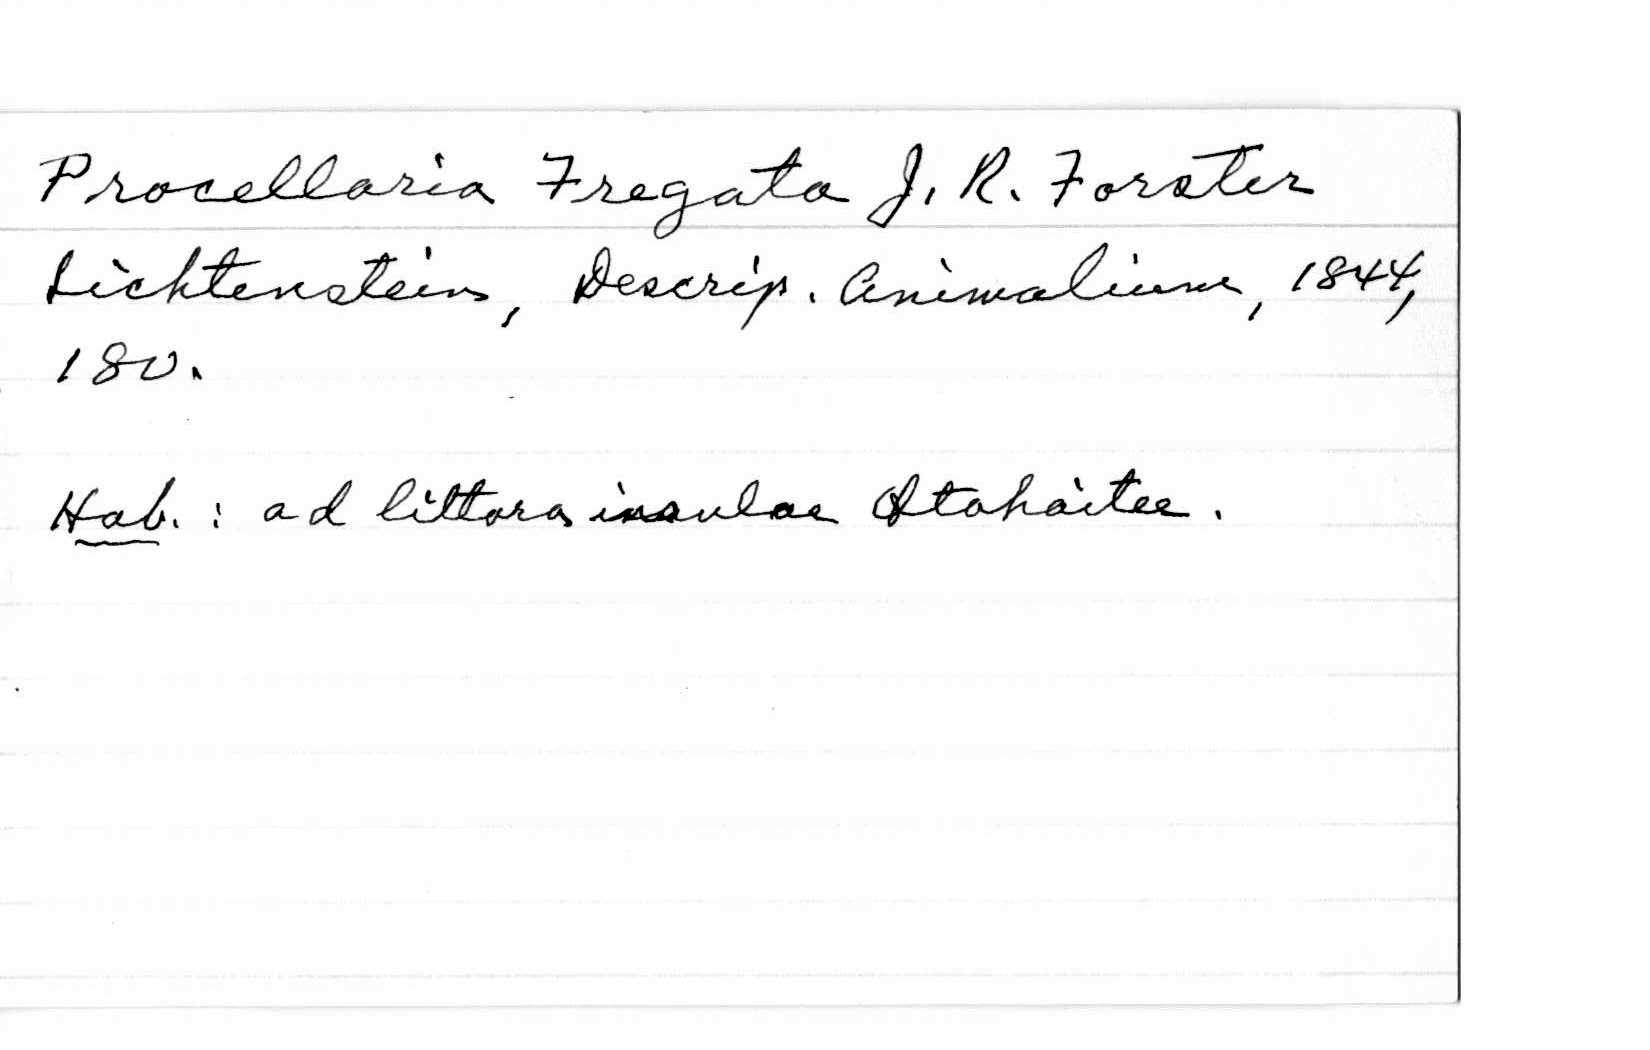 Procellaria Fregata J. R. Forster
Lichtenstein, Descrip. Animalium, 1844,
180.
Hab. : ad littora insulae Otahaitee.